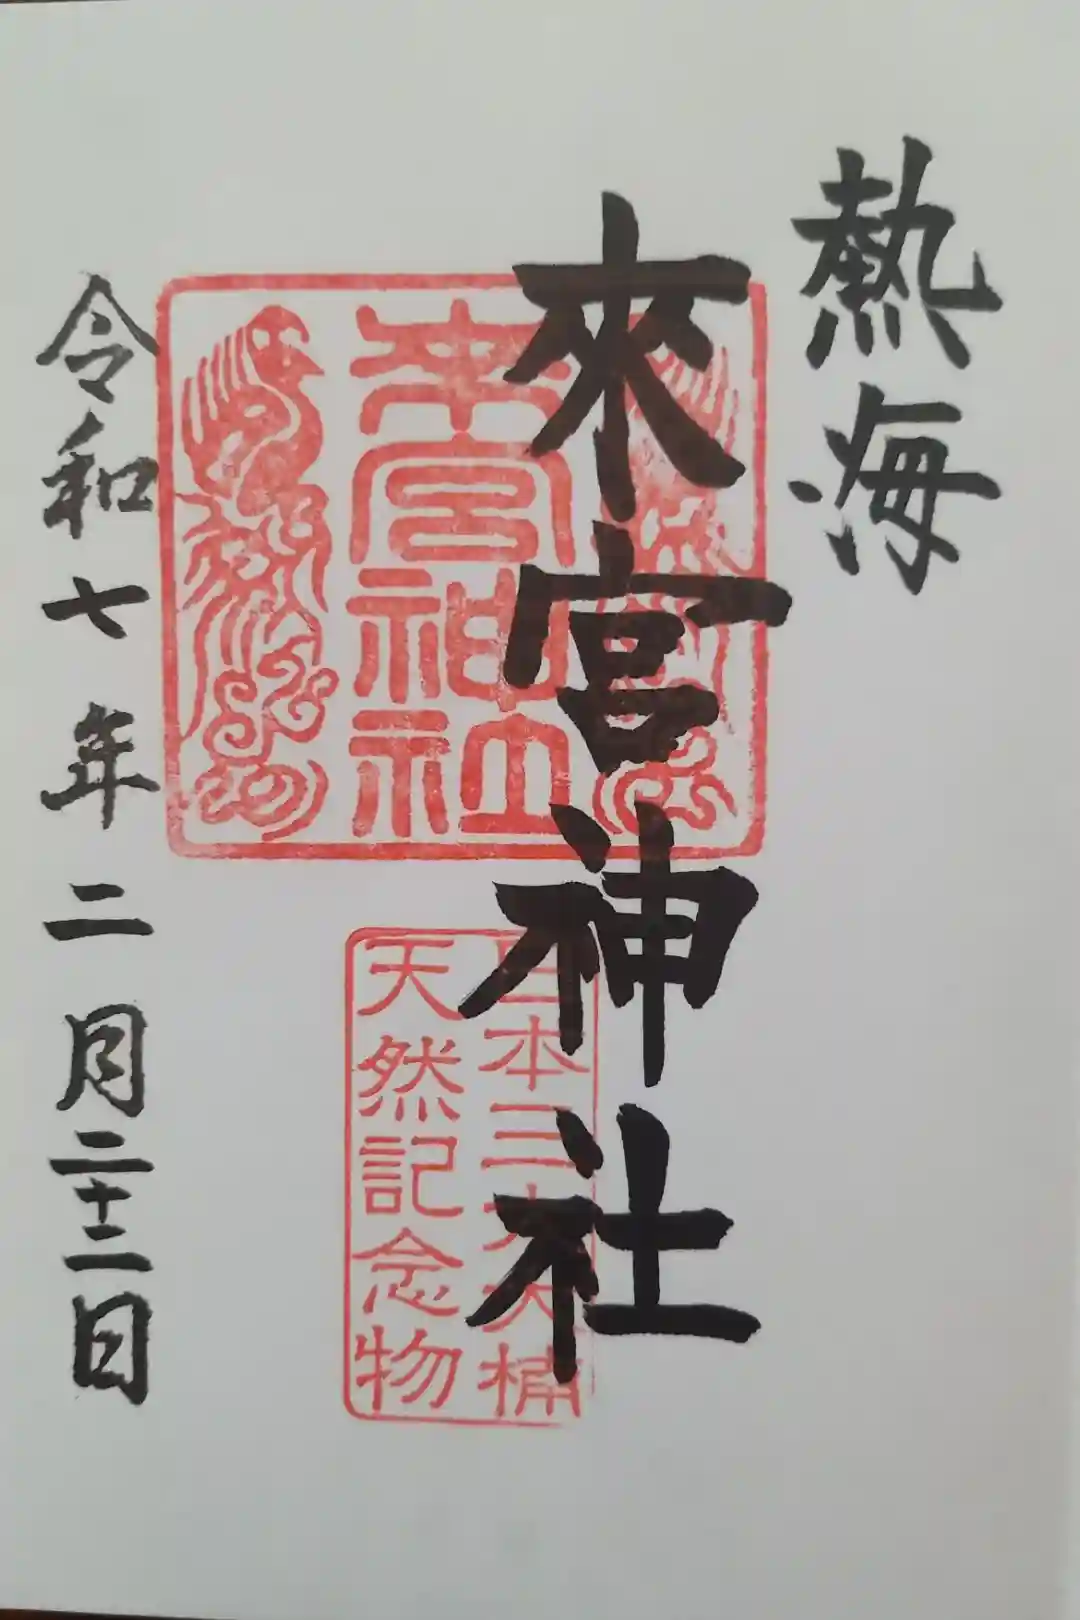 熱海
來宮神社
來宮
神社
日本三大大楠
天然記念物
令和七年二月二十二日